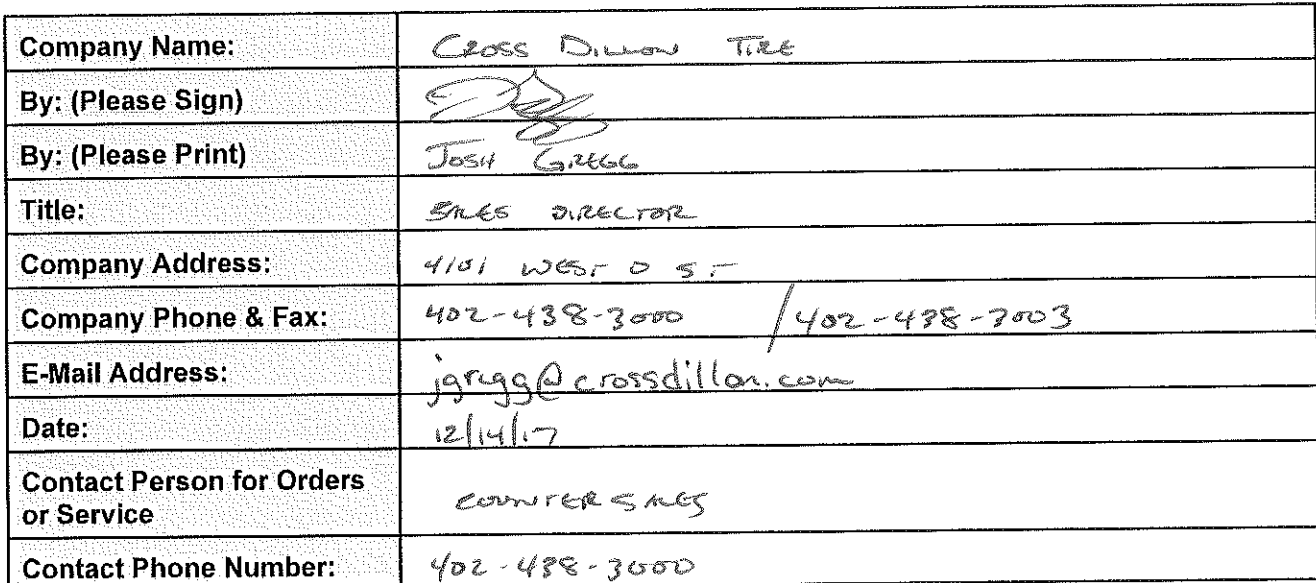 Company Name: CROSS DILLON TIRE
By: (Please Sign)
By: (Please Print) JOSH GREGG
Title: SALES DIRECTOR
Company Address: 4101 WEST O ST
Company Phone & Fax: 402-438-3000 / 402-438-3003
E-Mail Address: jgregg@crossdillon.com
Date: 12/14/17
Contact Person for Orders
or Service COUNTER SALES
Contact Phone Number: 402-438-3000